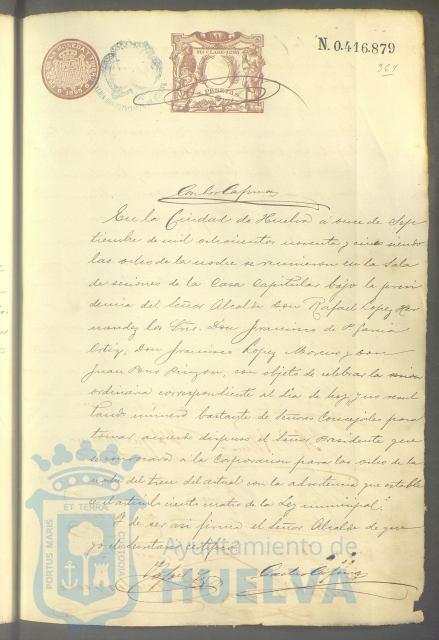 N. 0.416.879
367
1895
PESETAS
En la Ciudad de Huelva á once de Sep
tiembre de mil ochocientos noventa y cinco siendo
las ocho de la noche se reunieron en la Sala
de sesiones de la Casa Capitular bajo la presi
dencia del Señor Alcalde Don Rafael Lopez Her
nandez los Sres. Don Francisco de P. García
Ortiz, Don Francisco Lopez Moreno y Don
Juan Pons Pinzon, con objeto de celebrar la sesion
ordinaria correspondiente al dia de hoy y no resul
tando número bastante de Señores Concejales para
tomar acuerdo dispuso el Señor Presidente que
se convocara á la Corporacion para las ocho de la
noche del trece del actual con la advertencia que estable
el articulo ciento cuatro de la Ley municipal.
Y de ser asi firma el Señor Alcalde de que
yo el Secretario certifico
PORTUS MARIS ET TERRAE CUSTODIA
Ayuntamiento de
HUELVA